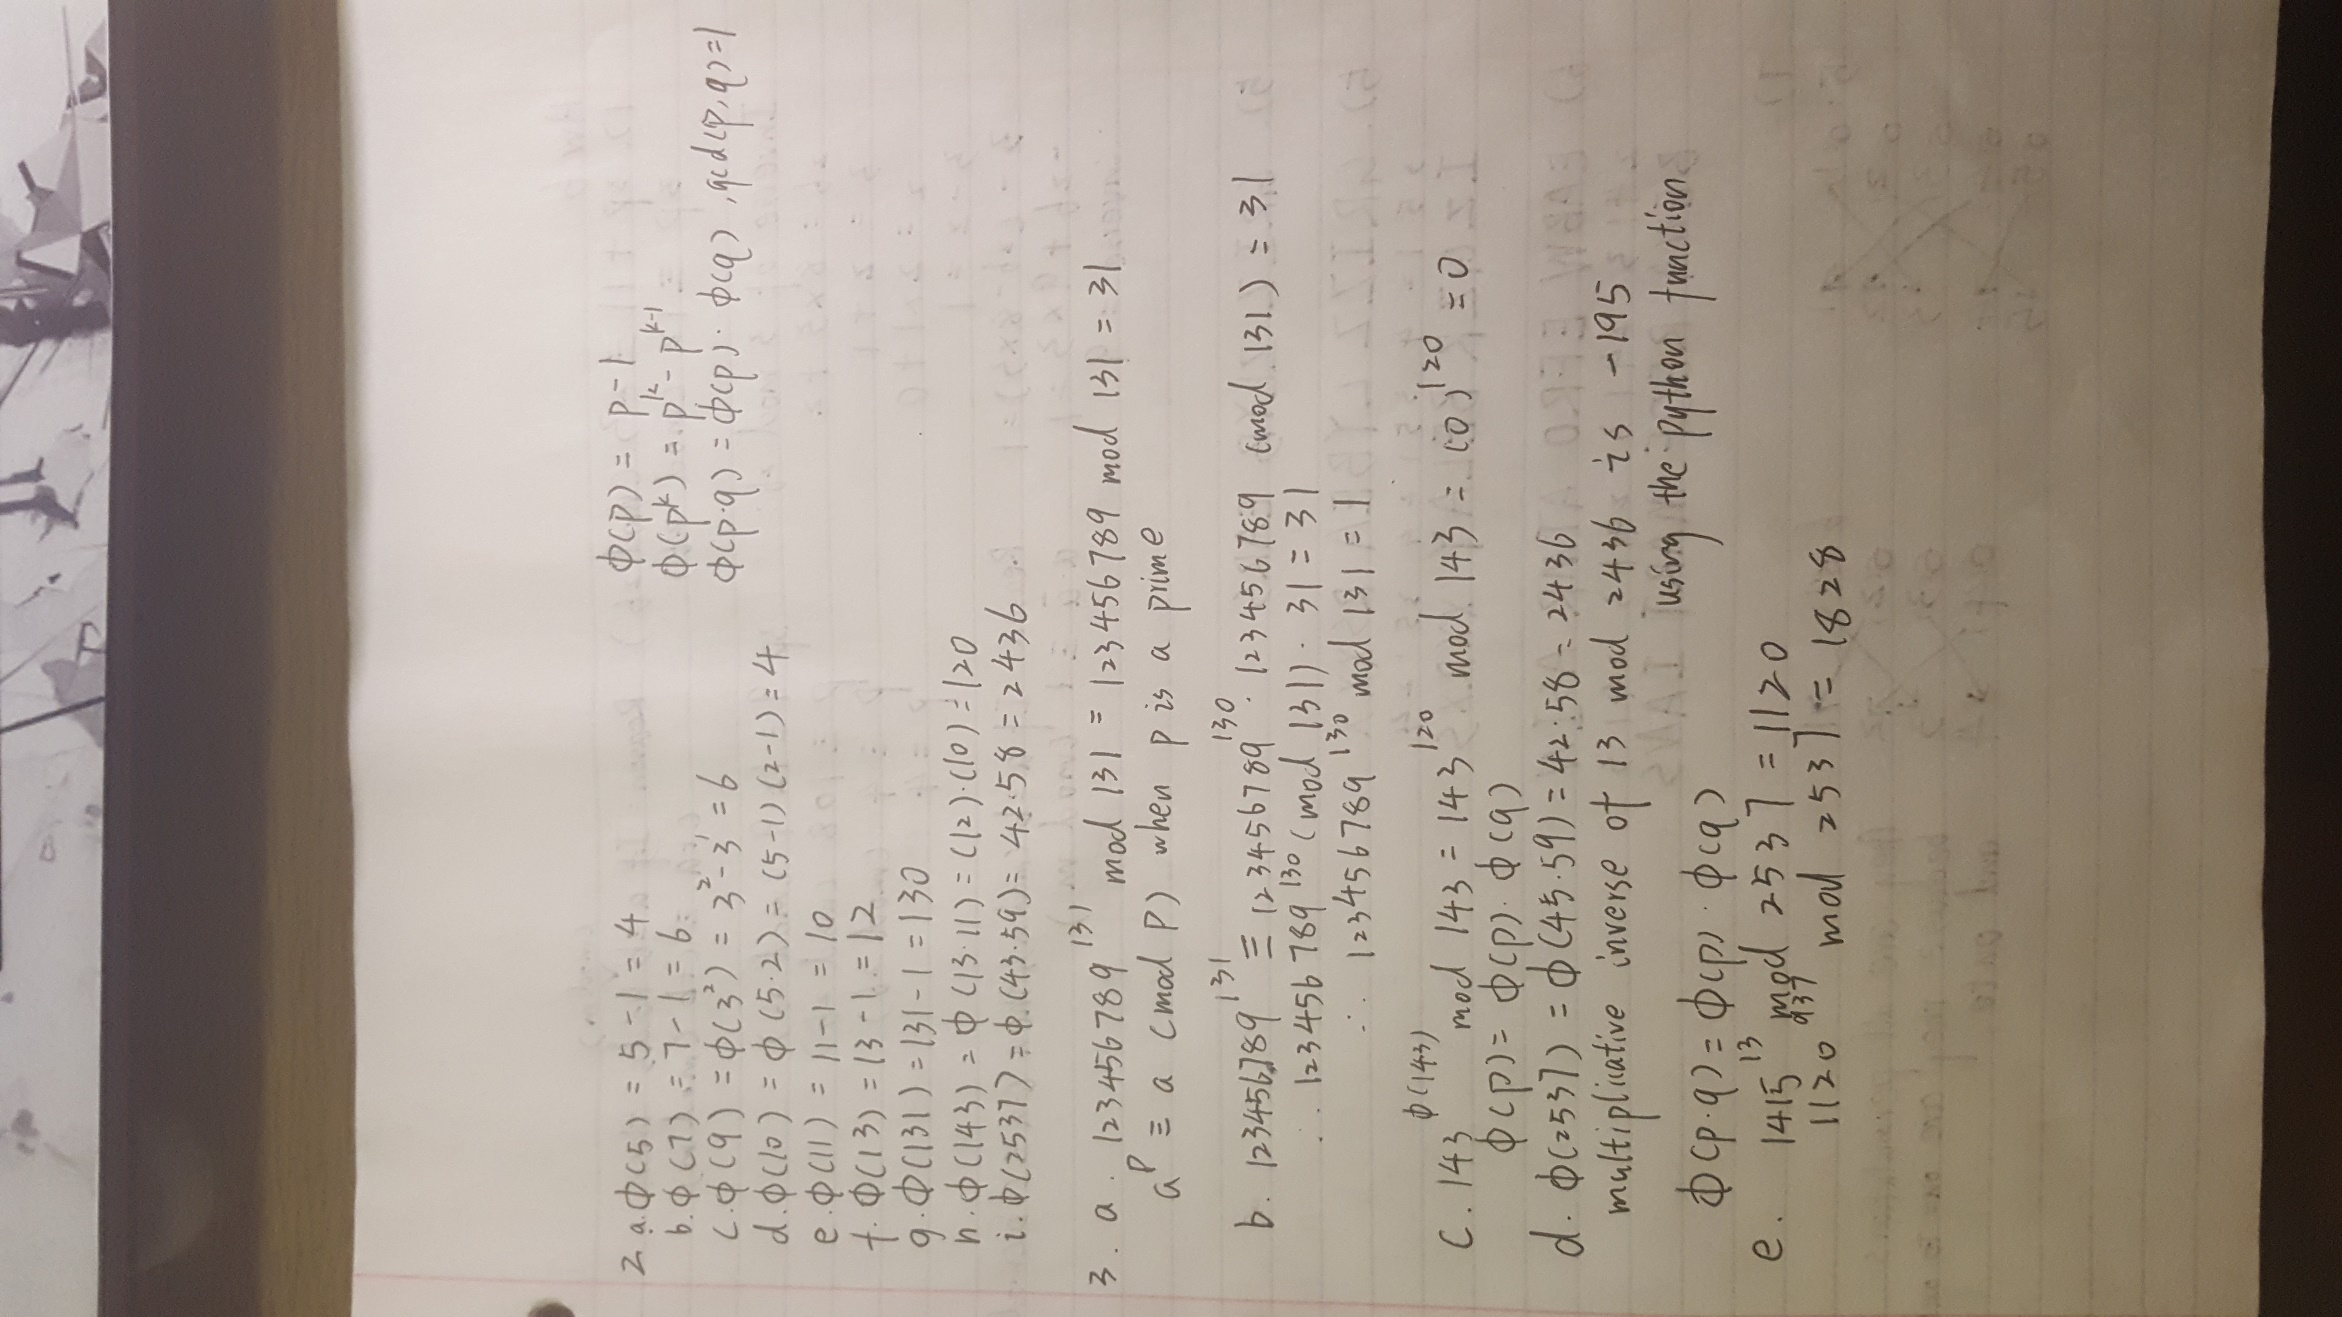 2. a. Φ(5) = 5-1 = 4
b. Φ(7) = 7-1 = 6
c. Φ(9) = Φ(3²) = 3²-3¹ = 6
d. Φ(10) = Φ(5·2) = (5-1)(2-1) = 4
e. Φ(11) = 11-1 = 10
f. Φ(13) = 13-1 = 12
g. Φ(131) = 131-1 = 130
h. Φ(143) = Φ(13·11) = (12)·(10) = 120
i. Φ(2537) = Φ(43·59) = 42·58 = 2436
Φ(p) = p-1
Φ(p^k) = p^k - p^k-1
Φ(p·q) = Φ(p)·Φ(q), gcd(p,q)=1
3. a. 123456789^131 mod 131 = 123456789 mod 131 = 31
a^p ≡ a (mod p) when p is a prime
b. 123456789^131 ≡ 123456789^130 · 123456789 (mod 131) = 31
∴ 123456789^130 (mod 131) · 31 = 31
∴ 123456789^130 mod 131 = 1
c. 143^Φ(143) mod 143 = 143^120 mod 143 = (0)^120 = 0
Φ(p) = Φ(p)·Φ(q)
d. Φ(2537) = Φ(45·59) = 42·58 = 2436
multiplicative inverse of 13 mod 2436 is -195
using the python function
Φ(p·q) = Φ(p)·Φ(q)
e. 1415^13 mod 2537 = 1120
1120^937 mod 2537 = 1828